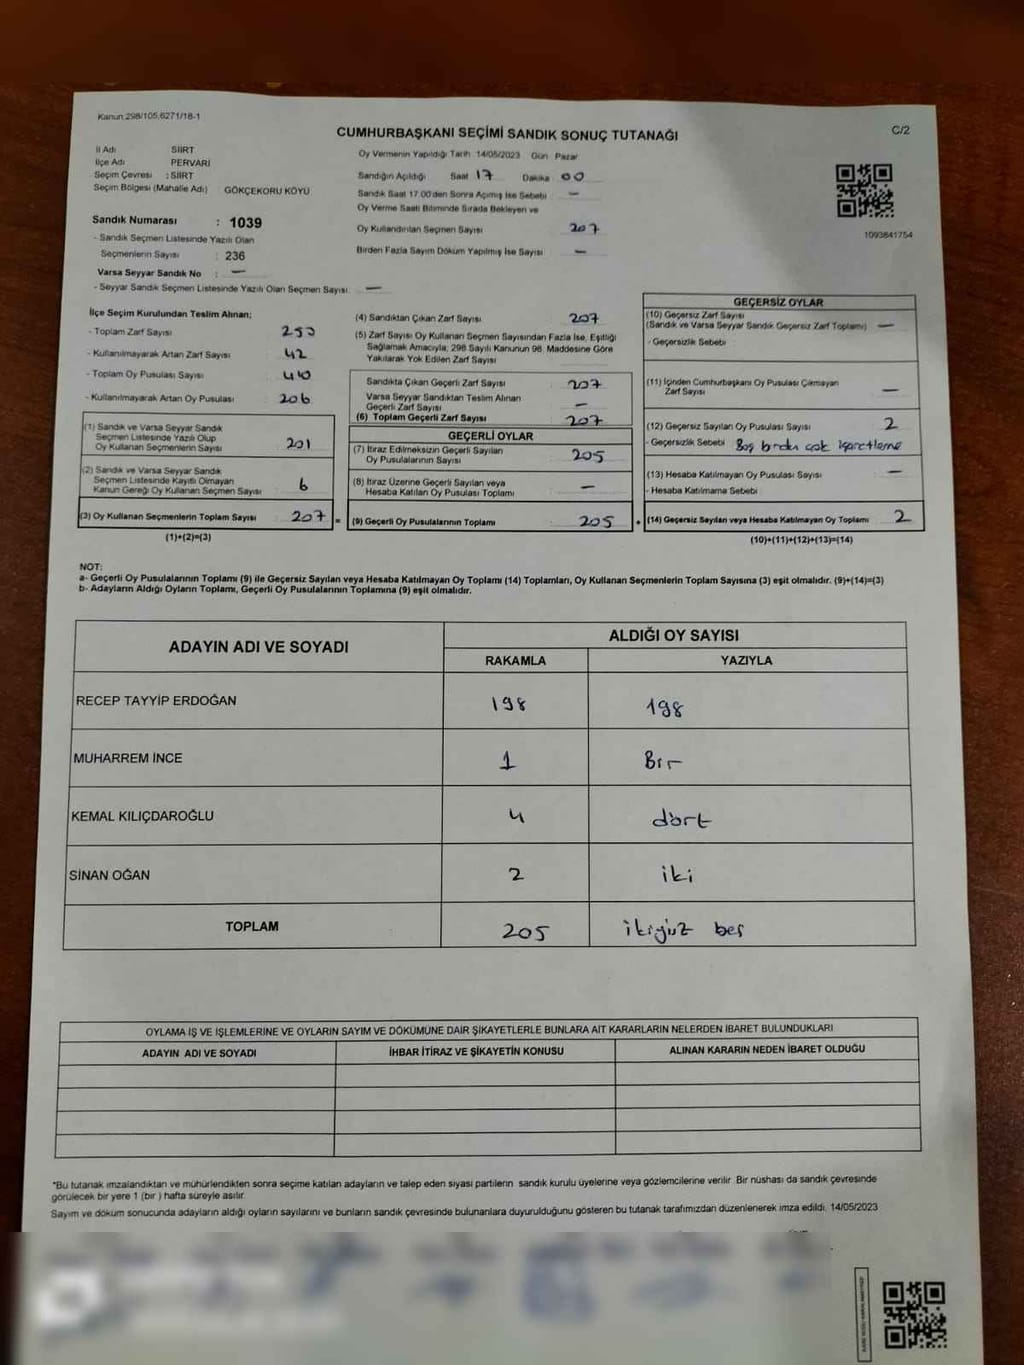 Kanun.298/105,6271/18-1
CUMHURBAŞKANI SEÇİMİ SANDIK SONUÇ TUTANAĞI
C/2
İl Adı SİİRT
İlçe Adı PERVARİ
Seçim Çevresi : SİİRT
Seçim Bölgesi (Mahalle Adı) GÖKÇEKORU KÖYÜ
Sandık Numarası : 1039
- Sandık Seçmen Listesinde Yazılı Olan
Seçmenlerin Sayısı : 236
Varsa Seyyar Sandık No : —
- Seyyar Sandık Seçmen Listesinde Yazılı Olan Seçmen Sayısı: —
Oy Vermenin Yapıldığı Tarih 14/05/2023 Gün Pazar
Sandığın Açıldığı Saat 17 Dakika 00
Sandık Saat 17.00'den Sonra Açılmış İse Sebebi —
Oy Verme Saati Bitiminde Sırada Bekleyen ve
Oy Kullandırılan Seçmen Sayısı 207
Birden Fazla Sayım Döküm Yapılmış İse Sayısı —
1093841754
İlçe Seçim Kurulundan Teslim Alınan;
- Toplam Zarf Sayısı 250
- Kullanılmayarak Artan Zarf Sayısı 42
- Toplam Oy Pusulası Sayısı 410
- Kullanılmayarak Artan Oy Pusulası 206
(1) Sandık ve Varsa Seyyar Sandık
Seçmen Listesinde Yazılı Olup
Oy Kullanan Seçmenlerin Sayısı 201
(2) Sandık ve Varsa Seyyar Sandık
Seçmen Listesinde Kayıtlı Olmayan
Kanun Gereği Oy Kullanan Seçmen Sayısı 6
(3) Oy Kullanan Seçmenlerin Toplam Sayısı 207 =
(1)+(2)=(3)
(4) Sandıktan Çıkan Zarf Sayısı 207
(5) Zarf Sayısı Oy Kullanan Seçmen Sayısından Fazla İse, Eşitliği
Sağlamak Amacıyla, 298 Sayılı Kanunun 98. Maddesine Göre
Yakılarak Yok Edilen Zarf Sayısı
Sandıkta Çıkan Geçerli Zarf Sayısı 207
Varsa Seyyar Sandıktan Teslim Alınan
Geçerli Zarf Sayısı —
(6) Toplam Geçerli Zarf Sayısı 207
GEÇERLİ OYLAR
(7) İtiraz Edilmeksizin Geçerli Sayılan
Oy Pusulalarının Sayısı 205
(8) İtiraz Üzerine Geçerli Sayılan veya
Hesaba Katılan Oy Pusulası Toplamı —
(9) Geçerli Oy Pusulalarının Toplamı 205 +
GEÇERSİZ OYLAR
(10) Geçersiz Zarf Sayısı
(Sandık ve Varsa Seyyar Sandık Geçersiz Zarf Toplamı) —
- Geçersizlik Sebebi
(11) İçinden Cumhurbaşkanı Oy Pusulası Çıkmayan
Zarf Sayısı —
(12) Geçersiz Sayılan Oy Pusulası Sayısı 2
- Geçersizlik Sebebi Boş birden çok işaretleme
(13) Hesaba Katılmayan Oy Pusulası Sayısı —
- Hesaba Katılmama Sebebi
(14) Geçersiz Sayılan veya Hesaba Katılmayan Oy Toplamı 2
(10)+(11)+(12)+(13)=(14)
NOT:
a- Geçerli Oy Pusulalarının Toplamı (9) ile Geçersiz Sayılan veya Hesaba Katılmayan Oy Toplamı (14) Toplamları, Oy Kullanan Seçmenlerin Toplam Sayısına (3) eşit olmalıdır. (9)+(14)=(3)
b- Adayların Aldığı Oyların Toplamı, Geçerli Oy Pusulalarının Toplamına (9) eşit olmalıdır.
ADAYIN ADI VE SOYADI ALDIĞI OY SAYISI
RAKAMLA YAZIYLA
RECEP TAYYİP ERDOĞAN 198 198
MUHARREM İNCE 1 Bir
KEMAL KILIÇDAROĞLU 4 dört
SİNAN OĞAN 2 iki
TOPLAM 205 ikiyüz beş
OYLAMA İŞ VE İŞLEMLERİNE VE OYLARIN SAYIM VE DÖKÜMÜNE DAİR ŞİKAYETLERLE BUNLARA AİT KARARLARIN NELERDEN İBARET BULUNDUKLARI
ADAYIN ADI VE SOYADI İHBAR İTİRAZ VE ŞİKAYETİN KONUSU ALINAN KARARIN NEDEN İBARET OLDUĞU
*Bu tutanak imzalandıktan ve mühürlendikten sonra seçime katılan adayların ve talep eden siyasi partilerin sandık kurulu üyelerine veya gözlemcilerine verilir. Bir nüshası da sandık çevresinde
görülecek bir yere 1 (bir) hafta süreyle asılır.
Sayım ve döküm sonucunda adayların aldığı oyların sayılarını ve bunların sandık çevresinde bulunanlara duyurulduğunu gösteren bu tutanak tarafımızdan düzenlenerek imza edildi. 14/05/2023